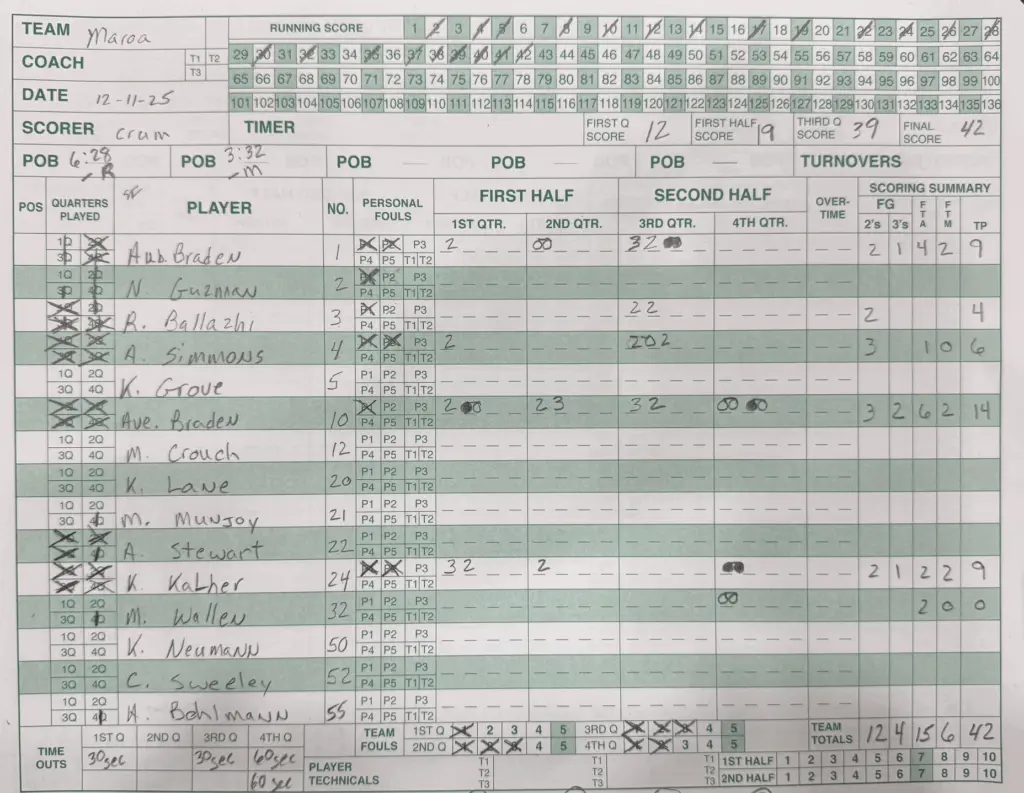 TEAM Maroa RUNNING SCORE 1 2 3 4 5 6 7 8 9 10 11 12 13 14 15 16 17 18 19 20 21 22 23 24 25 26 27 28
COACH T1 T2 T3 29 30 31 32 33 34 35 36 37 38 39 40 41 42 43 44 45 46 47 48 49 50 51 52 53 54 55 56 57 58 59 60 61 62 63 64
65 66 67 68 69 70 71 72 73 74 75 76 77 78 79 80 81 82 83 84 85 86 87 88 89 90 91 92 93 94 95 96 97 98 99 100
DATE 12-11-25 101 102 103 104 105 106 107 108 109 110 111 112 113 114 115 116 117 118 119 120 121 122 123 124 125 126 127 128 129 130 131 132 133 134 135 136
SCORER Crum TIMER FIRST Q SCORE 12 FIRST HALF SCORE 19 THIRD Q SCORE 39 FINAL SCORE 42
POB 6:28 - R POB 3:32 - M POB — POB — POB — TURNOVERS
POS QUARTERS PLAYED PLAYER NO. PERSONAL FOULS FIRST HALF SECOND HALF OVER-TIME SCORING SUMMARY
1ST QTR. 2ND QTR. 3RD QTR. 4TH QTR. FG 2's 3's FTA FTM TP
1Q 2Q 3Q 4Q Aub. Braden 1 P1 P2 P3 P4 P5 T1 T2 2 00 32 2 1 4 2 9
1Q 2Q 3Q 4Q N. Guzman 2 P1 P2 P3 P4 P5 T1 T2
1Q 2Q 3Q 4Q R. Ballazhi 3 P1 P2 P3 P4 P5 T1 T2 22 2 4
1Q 2Q 3Q 4Q A. Simmons 4 P1 P2 P3 P4 P5 T1 T2 2 202 3 1 0 6
1Q 2Q 3Q 4Q K. Grove 5 P1 P2 P3 P4 P5 T1 T2
1Q 2Q 3Q 4Q Ave. Braden 10 P1 P2 P3 P4 P5 T1 T2 2 23 32 00 3 2 6 2 14
1Q 2Q 3Q 4Q M. Crouch 12 P1 P2 P3 P4 P5 T1 T2
1Q 2Q 3Q 4Q K. Lane 20 P1 P2 P3 P4 P5 T1 T2
1Q 2Q 3Q 4Q M. Munjoy 21 P1 P2 P3 P4 P5 T1 T2
1Q 2Q 3Q 4Q A. Stewart 22 P1 P2 P3 P4 P5 T1 T2
1Q 2Q 3Q 4Q K. Kalher 24 P1 P2 P3 P4 P5 T1 T2 32 2 2 1 2 2 9
1Q 2Q 3Q 4Q M. Wallen 32 P1 P2 P3 P4 P5 T1 T2 00 2 0 0
1Q 2Q 3Q 4Q K. Neumann 50 P1 P2 P3 P4 P5 T1 T2
1Q 2Q 3Q 4Q C. Sweeley 52 P1 P2 P3 P4 P5 T1 T2
1Q 2Q 3Q 4Q H. Bohlmann 55 P1 P2 P3 P4 P5 T1 T2
TIME OUTS 1ST Q 2ND Q 3RD Q 4TH Q TEAM FOULS 1ST Q 1 2 3 4 5 3RD Q 1 2 3 4 5 TEAM TOTALS 12 4 15 6 42
30sec 30sec 60sec 2ND Q 1 2 3 4 5 4TH Q 1 2 3 4 5
60 sec PLAYER TECHNICALS T1 T2 T3 T1 T2 T3 T1 T2 T3 1ST HALF 1 2 3 4 5 6 7 8 9 10
2ND HALF 1 2 3 4 5 6 7 8 9 10